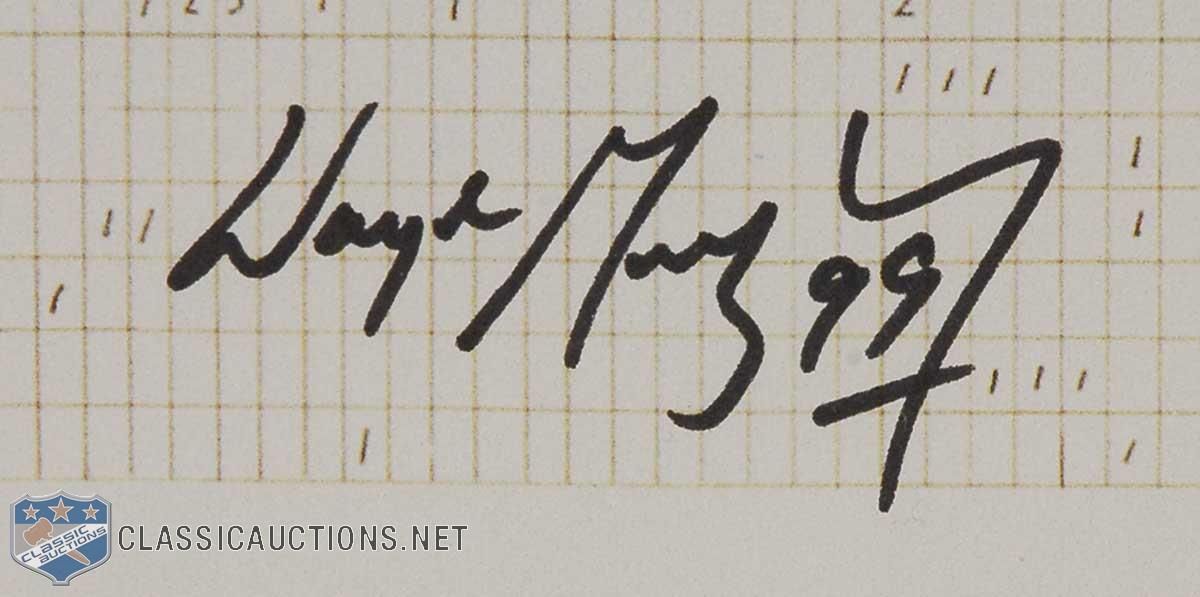 1 2 3 1 1 2
1 1 1
Wayne Gretzky 99
1
1 1
1
1
1 1 1
1 1
CLASSIC AUCTIONS CLASSICAUCTIONS.NET